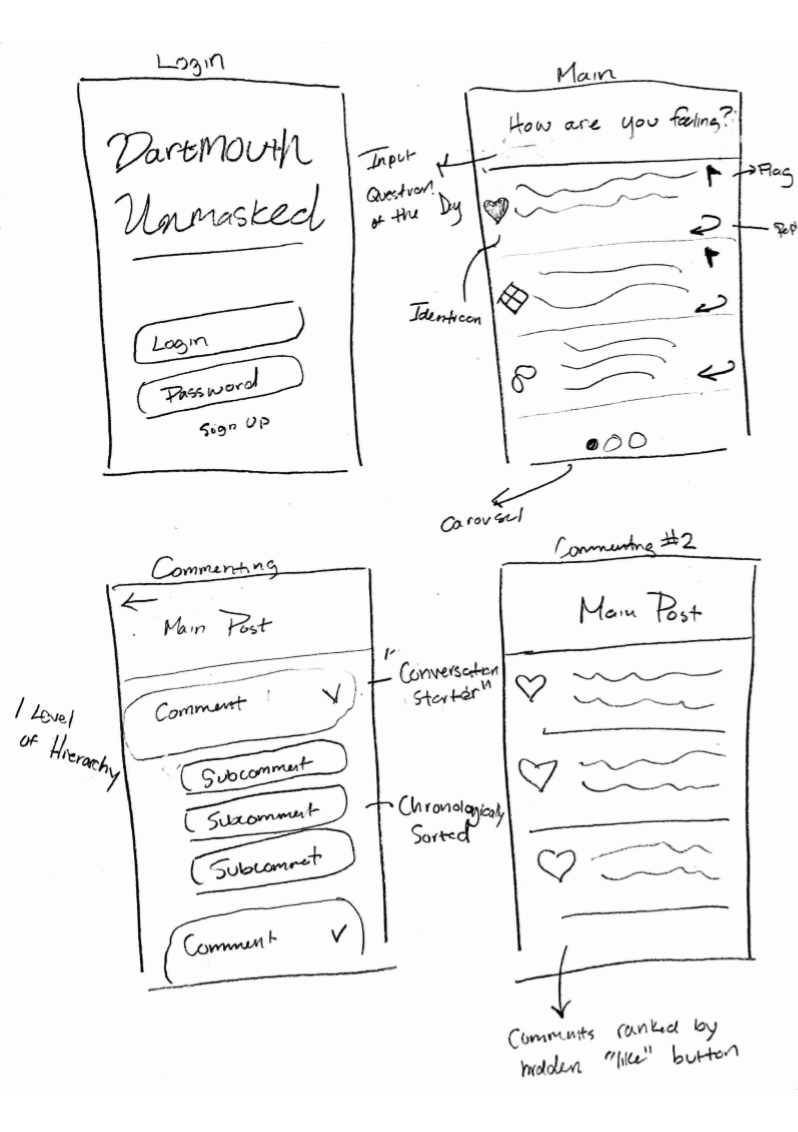 Login
Dartmouth
Unmasked
Login
Password
Sign UP
Main
How are you feeling?
Input
Question
of the Day
Flag
Identicon
Carousel
Commenting
Main Post
Comment
"Conversation
Starter"
1 Level
of Hierarchy
Subcomment
Subcomment
Chronologically
Sorted
Comment
Commenting #2
Main Post
Comments ranked by
hidden "like" button